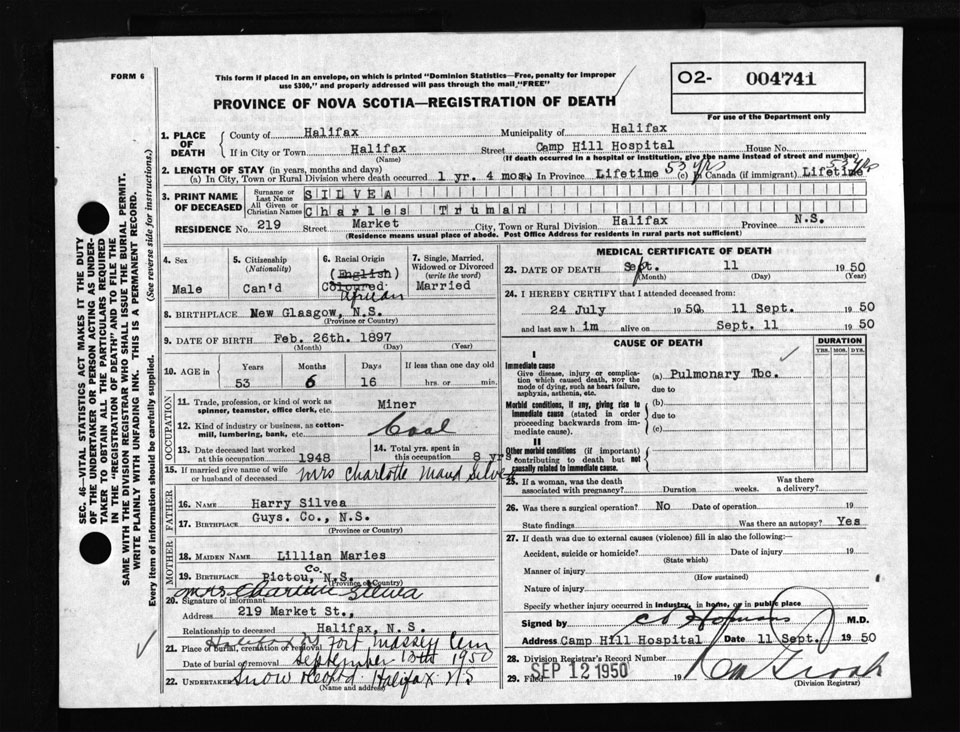 FORM 6
This form if placed in an envelope, on which is printed "Dominion Statistics—Free, penalty for improper
use $300," and properly addressed will pass through the mail "FREE"
O2- 004741
For use of the Department only
PROVINCE OF NOVA SCOTIA—REGISTRATION OF DEATH
SEC. 46—VITAL STATISTICS ACT MAKES IT THE DUTY
OF THE UNDERTAKER OR PERSON ACTING AS UNDER-
TAKER TO OBTAIN ALL THE PARTICULARS REQUIRED
IN THE "REGISTRATION OF DEATH" AND TO FILE THE
SAME WITH THE DIVISION REGISTRAR WHO SHALL ISSUE THE BURIAL PERMIT.
WRITE PLAINLY WITH UNFADING INK. THIS IS A PERMANENT RECORD.
Every item of information should be carefully supplied. (See reverse side for instructions.)
1. PLACE OF DEATH
County of Halifax Municipality of Halifax
If in City or Town Halifax (Name) Street Camp Hill Hospital House No.
(If death occurred in a hospital or institution, give the name instead of street and number)
2. LENGTH OF STAY (in years, months and days)
(a) In City, Town or Rural Division where death occurred 1 yr. 4 mos. In Province Lifetime 53 yrs (c) In Canada (if immigrant) Lifetime 53 yrs
3. PRINT NAME OF DECEASED
Surname or Last Name SILVEA
All Given or Christian Names Charles Truman
RESIDENCE No. 219 Street Market City, Town or Rural Division Halifax Province N.S.
(Residence means usual place of abode. Post Office Address for residents in rural parts not sufficient)
4. Sex Male
5. Citizenship (Nationality) Can'd
6. Racial Origin (English) Coloured African
7. Single, Married, Widowed or Divorced (write the word) Married
8. BIRTHPLACE New Glasgow, N.S.
(Province or Country)
9. DATE OF BIRTH Feb. 26th. 1897
(Month) (Day) (Year)
10. AGE in Years Months Days If less than one day
53 6 16 hrs. or min.
OCCUPATION
11. Trade, profession, or kind of work as spinner, teamster, office clerk, etc. Miner
12. Kind of industry or business, as cotton-mill, lumbering, bank, etc. Coal
13. Date deceased last worked at this occupation 1948
14. Total yrs. spent in this occupation 8 yrs.
15. If married give name of wife or husband of deceased Mrs Charlotte Maud Silvea
FATHER
16. NAME Harry Silvea
17. BIRTHPLACE Guys. Co., N.S.
(Province or Country)
MOTHER
18. MAIDEN NAME Lillian Maries
19. BIRTHPLACE Pictou, Co. N.S.
(Province or Country)
Mrs Charlotte Silvea
20. Signature of informant
Address 219 Market St.,
Relationship to deceased Halifax, N.S.
21. Place of burial, cremation or removal Halifax Fort Massey Cem
Date of burial or removal September 13th 1950
22. Undertaker Snow Halifax NS
(Name and address)
MEDICAL CERTIFICATE OF DEATH
23. DATE OF DEATH Sept. 11 1950
(Month) (Day) (Year)
24. I HEREBY CERTIFY that I attended deceased from:
24 July 1950, 11 Sept. 1950
and last saw him alive on Sept. 11 1950
CAUSE OF DEATH
DURATION
YRS. MOS. DYS.
I
Immediate cause
Give disease, injury or complication which caused death, NOT the mode of dying, such as heart failure, asphyxia, asthenia, etc.
(a) Pulmonary Tbc.
due to
Morbid conditions, if any, giving rise to immediate cause (stated in order proceeding backwards from immediate cause).
(b)
due to
(c)
II
Other morbid conditions (if important) contributing to death but not causally related to immediate cause.
25. If a woman, was the death associated with pregnancy? Duration weeks. Was there a delivery?
26. Was there a surgical operation? No Date of operation 19
State findings Was there an autopsy? Yes
27. If death was due to external causes (violence) fill in also the following:—
Accident, suicide or homicide? Date of injury 19
(State which)
Manner of injury
(How sustained)
Nature of injury
Specify whether injury occurred in industry, in home, or in public place
Signed by M.D.
Address Camp Hill Hospital Date 11 Sept. 1950
28. Division Registrar's Record Number
29. Filed SEP 12 1950 19
(Division Registrar)